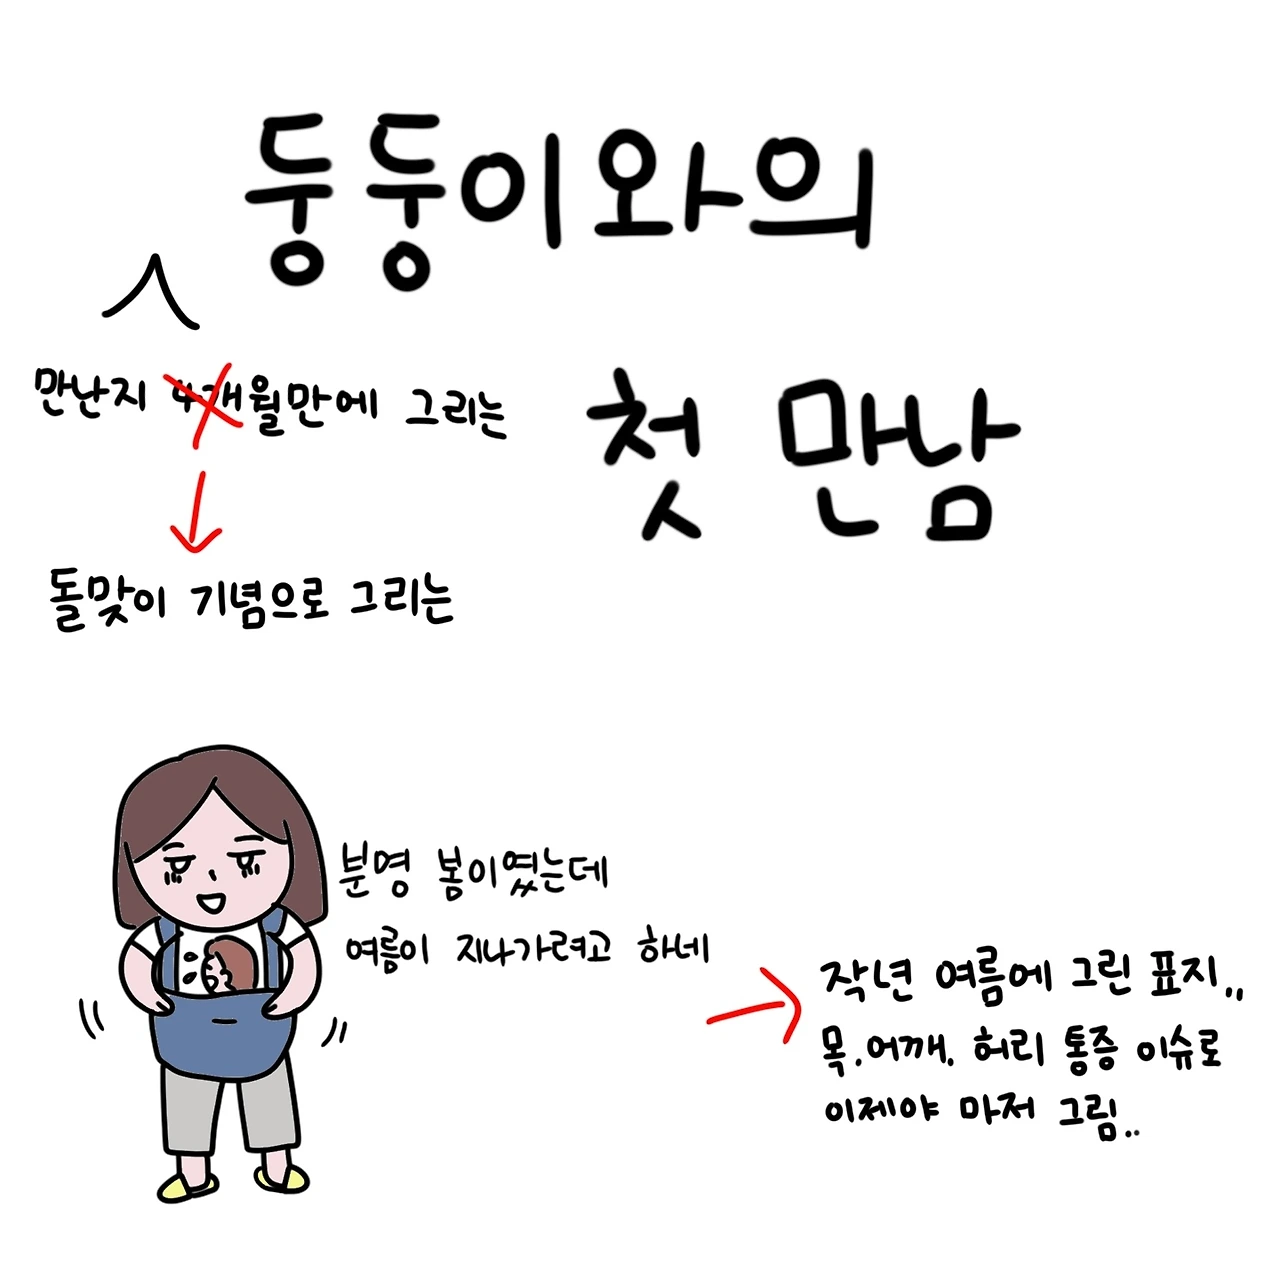 둥둥이와의
첫 만남
만난지 4개월만에 그리는
돌맞이 기념으로 그리는
분명 봄이였는데
여름이 지나가려고 하네
작년 여름에 그린 표지,,
목.어깨. 허리 통증 이슈로
이제야 마저 그림..